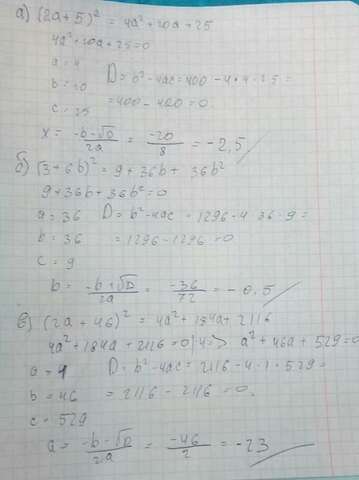 а) (2a+5)² = 4a²+20a+25
4a²+20a+25=0
a=4 D=b²-4ac=400-4*4*25=
b=20 =400-400=0.
c=25
x= -b-√D/2a = -20/8 = -2,5
б) (3+6b)² = 9+36b+36b²
9+36b+36b²=0
a=36 D=b²-4ac=1296-4·36·9=
b=36 =1296-1296=0
c=9
b= -b+√D/2a = -36/72 = -0,5
в) (2a+46)² = 4a²+184a+2116
4a²+184a+2116=0|:4=> a²+46a+529=0
a=1 D=b²-4ac=2116-4·1·529=
b=46 =2116-2116=0.
c=529
a= -b-√D/2a = -46/2 = -23